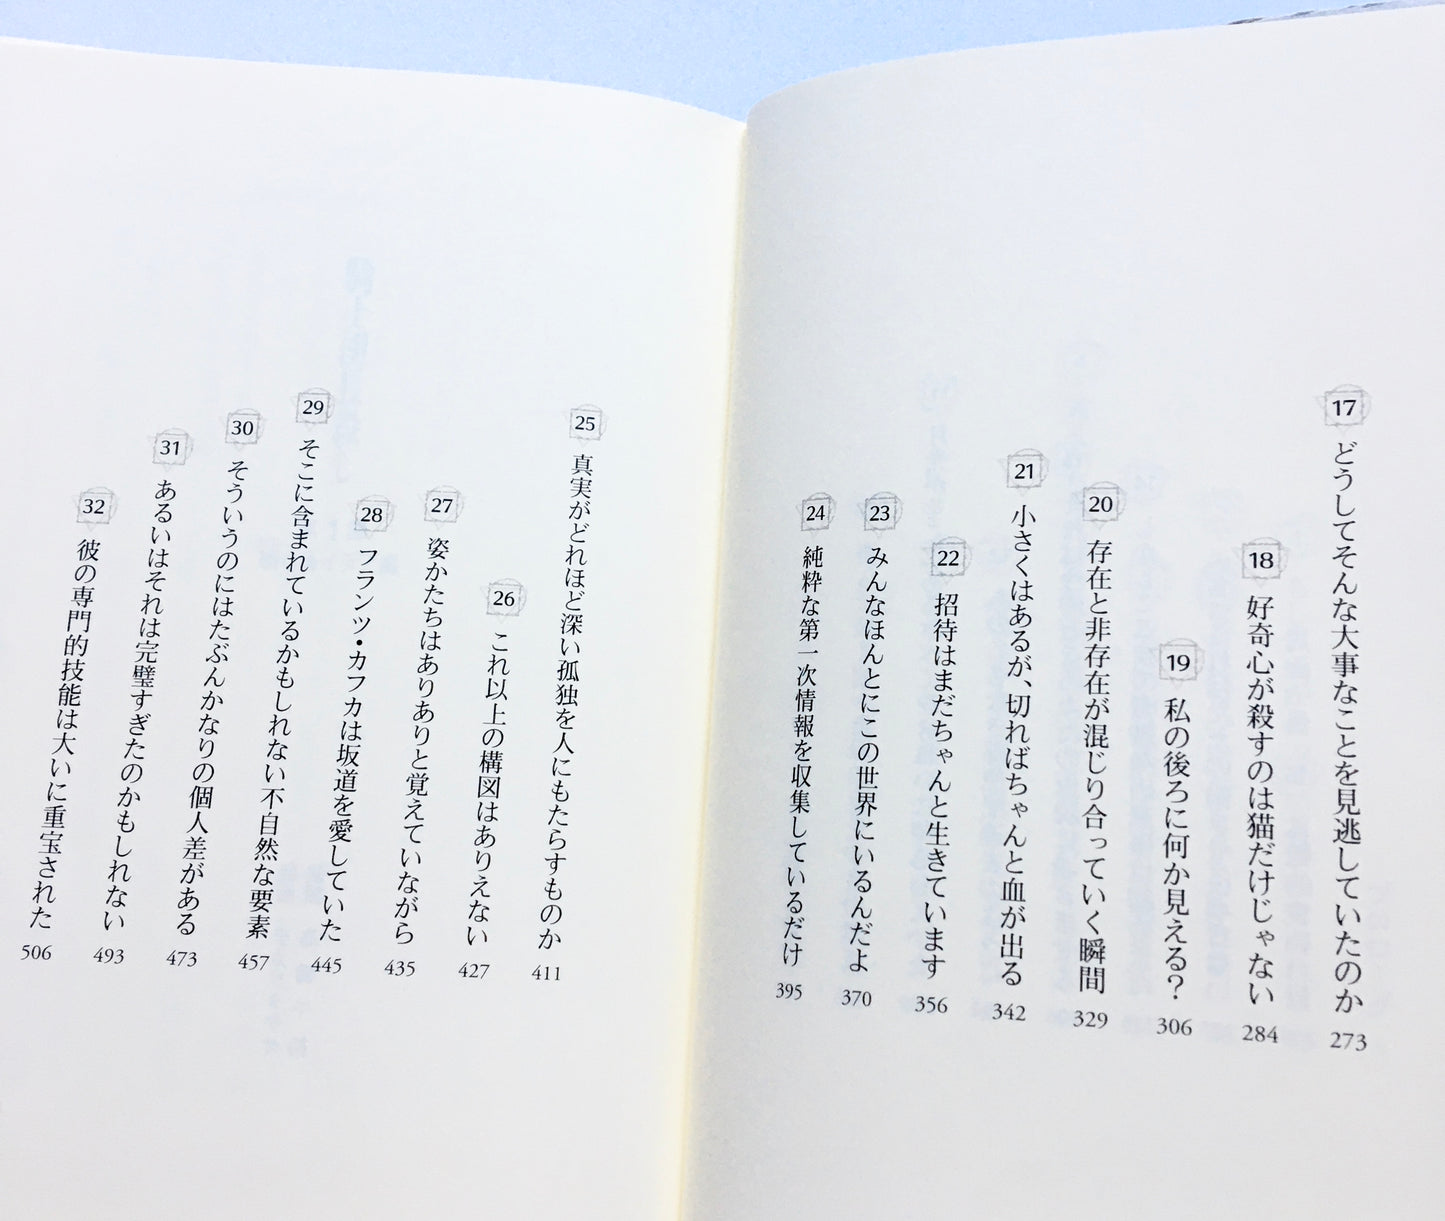 17 どうしてそんな大事なことを見逃していたのか 273
18 好奇心が殺すのは猫だけじゃない 284
19 私の後ろに何か見える? 306
20 存在と非存在が混じり合っていく瞬間 329
21 小さくはあるが、切ればちゃんと血が出る 342
22 招待はまだちゃんと生きています 356
23 みんなほんとにこの世界にいるんだよ 370
24 純粋な第一次情報を収集しているだけ 395
25 真実がどれほど深い孤独を人にもたらすものか 411
26 これ以上の構図はありえない 427
27 姿かたちはありありと覚えていながら 435
28 フランツ・カフカは坂道を愛していた 445
29 そこに含まれているかもしれない不自然な要素 457
30 そういうのにはたぶんかなりの個人差がある 473
31 あるいはそれは完璧すぎたのかもしれない 493
32 彼の専門的技能は大いに重宝された 506